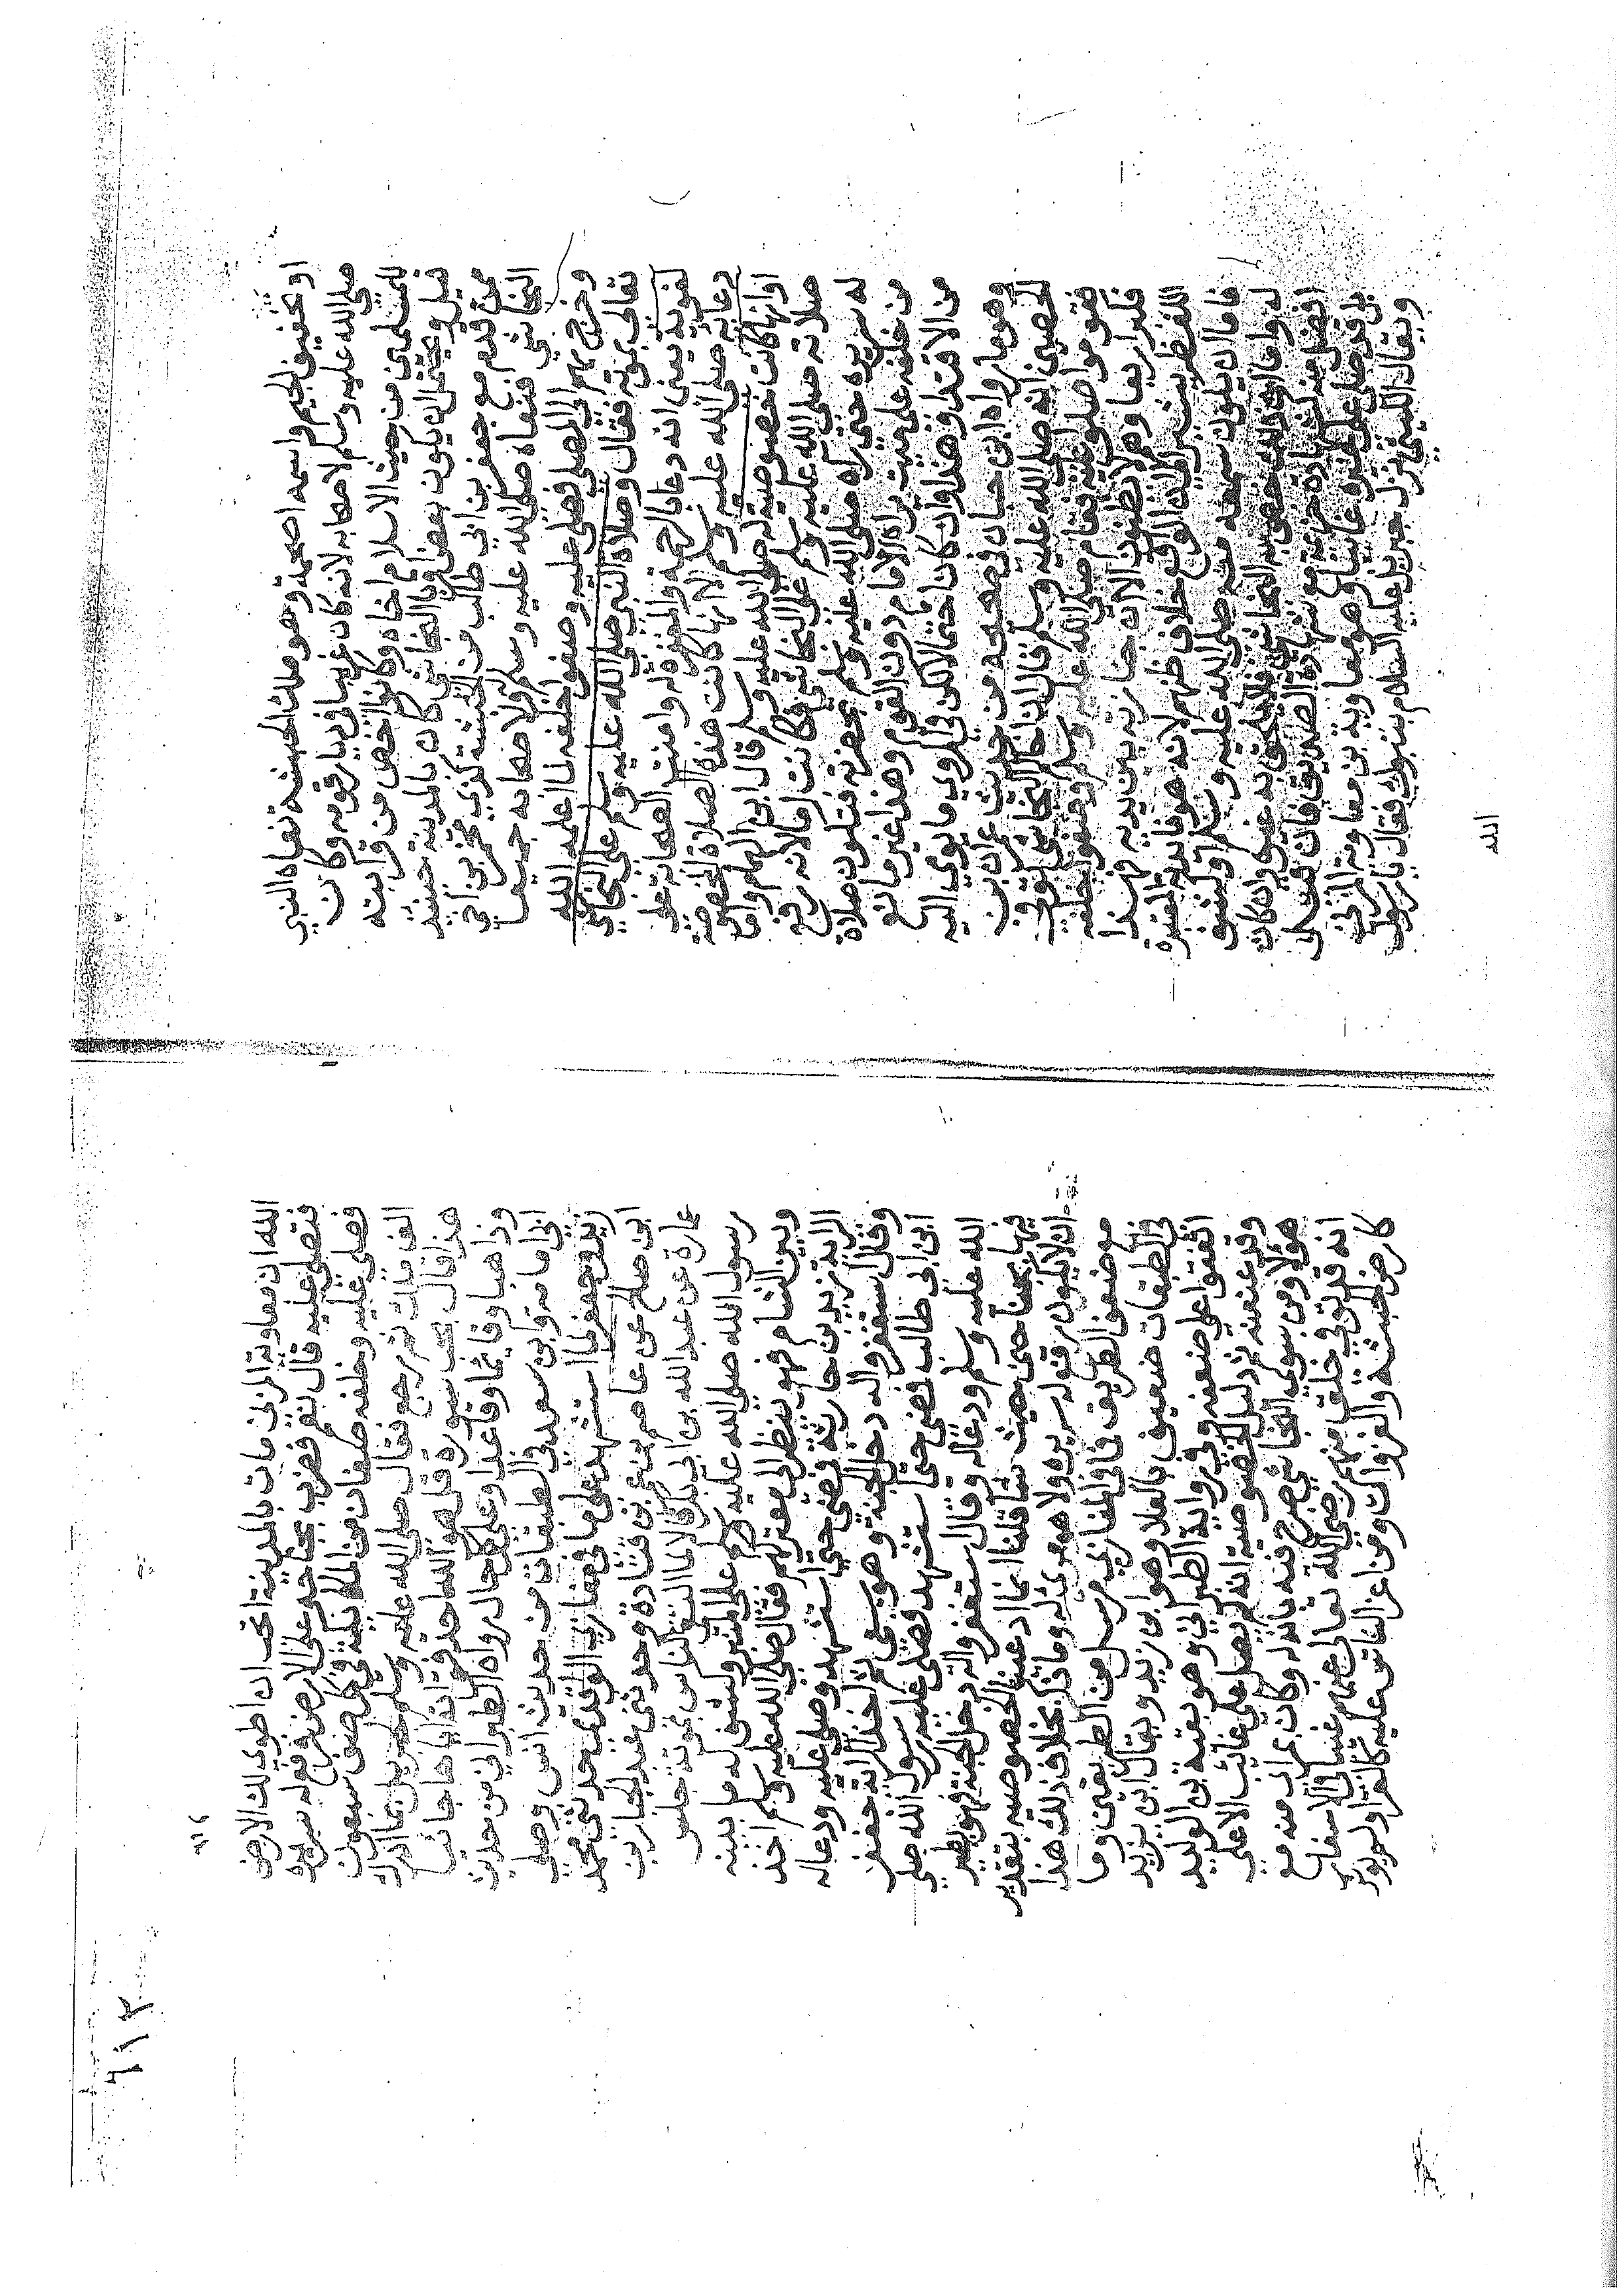 او تخفيف الجيم واسمه اصحمة وهو ملك الحبشة نعاه النبي
صلى الله عليه وسلم لاصحابه لانه كان غريبا في ديار قومه وكان
للمسلمين من حيث الاسلام اخاه وكانوا اخص من قرابته
قيل ويحتمل ان يكون بعض اقربا النجاشي كان بالمدينة حينئذ
ممن قدم مع جعفر بن ابي طالب من الحبشة لذي مخمر بن اخي
النجاشي فنعاه صلى الله عليه وسلم ولاصحابه جميعا
وخرج بهم الى المصلي فصلى عليه وصفوا خلفه لما اعلمه الله
تعالى بموته فقال وصلاة النبي صلى الله عليه وسلم على النجاشي
لغوية يعني انه دعا بالرحمة والمغفرة له وامنت الصحابة على
دعايه صلى الله عليه وسلم لا انها كانت هذه الصلاة المخصوصة
او انها كانت خصوصية له صلى الله عليه وسلم قال ابن الهمام واما
صلاته صلى الله عليه وسلم على النجاشي فكانت اما لانه رفع
له سريره حتى رآه صلى الله عليه وسلم بحضرته فتكون صلاة
من خلفه على ميت يراه الامام دون القوم وهذا غير مانع
من الاقتداء وهذا وان كان احتمالا لكن في المروي ما يومي اليه
وهو ما رواه ابن حبان في صحيحه من حديث عمران بن
الحصين انه صلى الله عليه وسلم قال ان اخاكم النجاشي توفي
فقوموا صلوا عليه فقام صلى الله عليه وسلم وصفوا خلفه
فكبر اربعا وهم لا يظنون الا ان جنازته بين يديه فهذا
اللفظ يشير الى ان الواقع خلاف ظنهم لانه هو فايدته المعتبرة
فاما ان يكون سمعه منه صلى الله عليه وسلم او كشف
له واما ان ذلك خص به النجاشي فلا يلحق به غيره وان كان
افضل منه كشهادة خزيمة مع شهادة الصديق فان قيل
بل قد صلى على غيره غايبا وهو معاوية بن معاوية المزني
ويقال الليثي نزل جبريل عليه السلام بتبوك فقال يا رسول
الله
الله ان معاوية المزني مات بالمدينة اتحب ان اطوي لك الارض
فتصلي عليه قال نعم فضرب بجناحه على الارض فرفع له سريره
فصلى عليه وخلفه صفان من الملايكة في كل صف سبعون
الف ملك ثم رجع فقال صلى الله عليه وسلم لجبريل بما ادرك
هذا قال بحب سورة قل هو الله احد وقرائته اياها جائيا
وذاهبا وقايما وقاعدا وعلى كل حال رواه الطبراني من حديث
ابي امامة وابن سعد في الطبقات من حديث انس وصلى
زيد وجعفر لما استشهد على ما في مغازي الواقدي حدثني محمد
ابن صالح عن عاصم بن عمر بن قتادة وحدثني عبد الجبار بن
عمارة عن عبد الله بن ابي بكر قالا لما التقى الناس بموتة جلس
رسول الله صلى الله عليه وسلم على المنبر وكشف له ما بينه
وبين الشام فهو ينظر الى معتركهم فقال صلى الله عليه وسلم اخذ
الراية زيد بن حارثة فمضى حتى استشهد وصلى عليه ودعا له
وقال استغفروا له دخل الجنة وهو يسعى ثم اخذ الراية جعفر
ابن ابي طالب فمضى حتى استشهد فصلى عليه رسول الله صلى
الله عليه وسلم ودعا له وقال استغفروا له دخل الجنة فهو يطير
فيها بجناحين حيث شا قلنا انما ادعينا الخصوصية بتقدير
ان لا يكون رفع له سريره ولا هو مرئ له وما ذكر بخلاف ذلك هذا
مع ضعف الطريق فما في المغازي مرسل من الطريقين وما
في الطبقات ضعيف بالعلا وهو ابن زيد ويقال ابن يزيد
اتفقوا على ضعفه وفي رواية الطبراني وهو بقية بن الوليد
وقد عنعنه ثم دليل الخصوصية انه لم يصل على غايب الا على
هولا ومن سوى النجاشي صرح فيه بانه له وكان بمرأى منه مع
انه قد توفي خلق منهم رضي الله تعالى عنهم غيبا في الاسفار
كارض الحبشة والغزوات ومن اعز الناس عليه كالقرا ولم يوثر